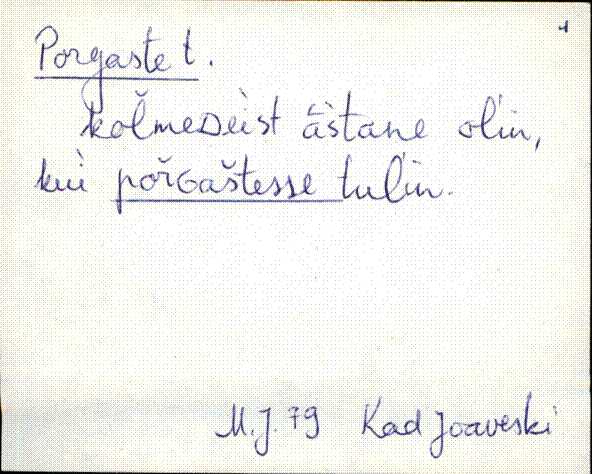 Porgaste t.
kolmeᴅèist ā̀stane olin,
kui põrɢaštesse tulin.
M.J. 79 Kad Joaveski